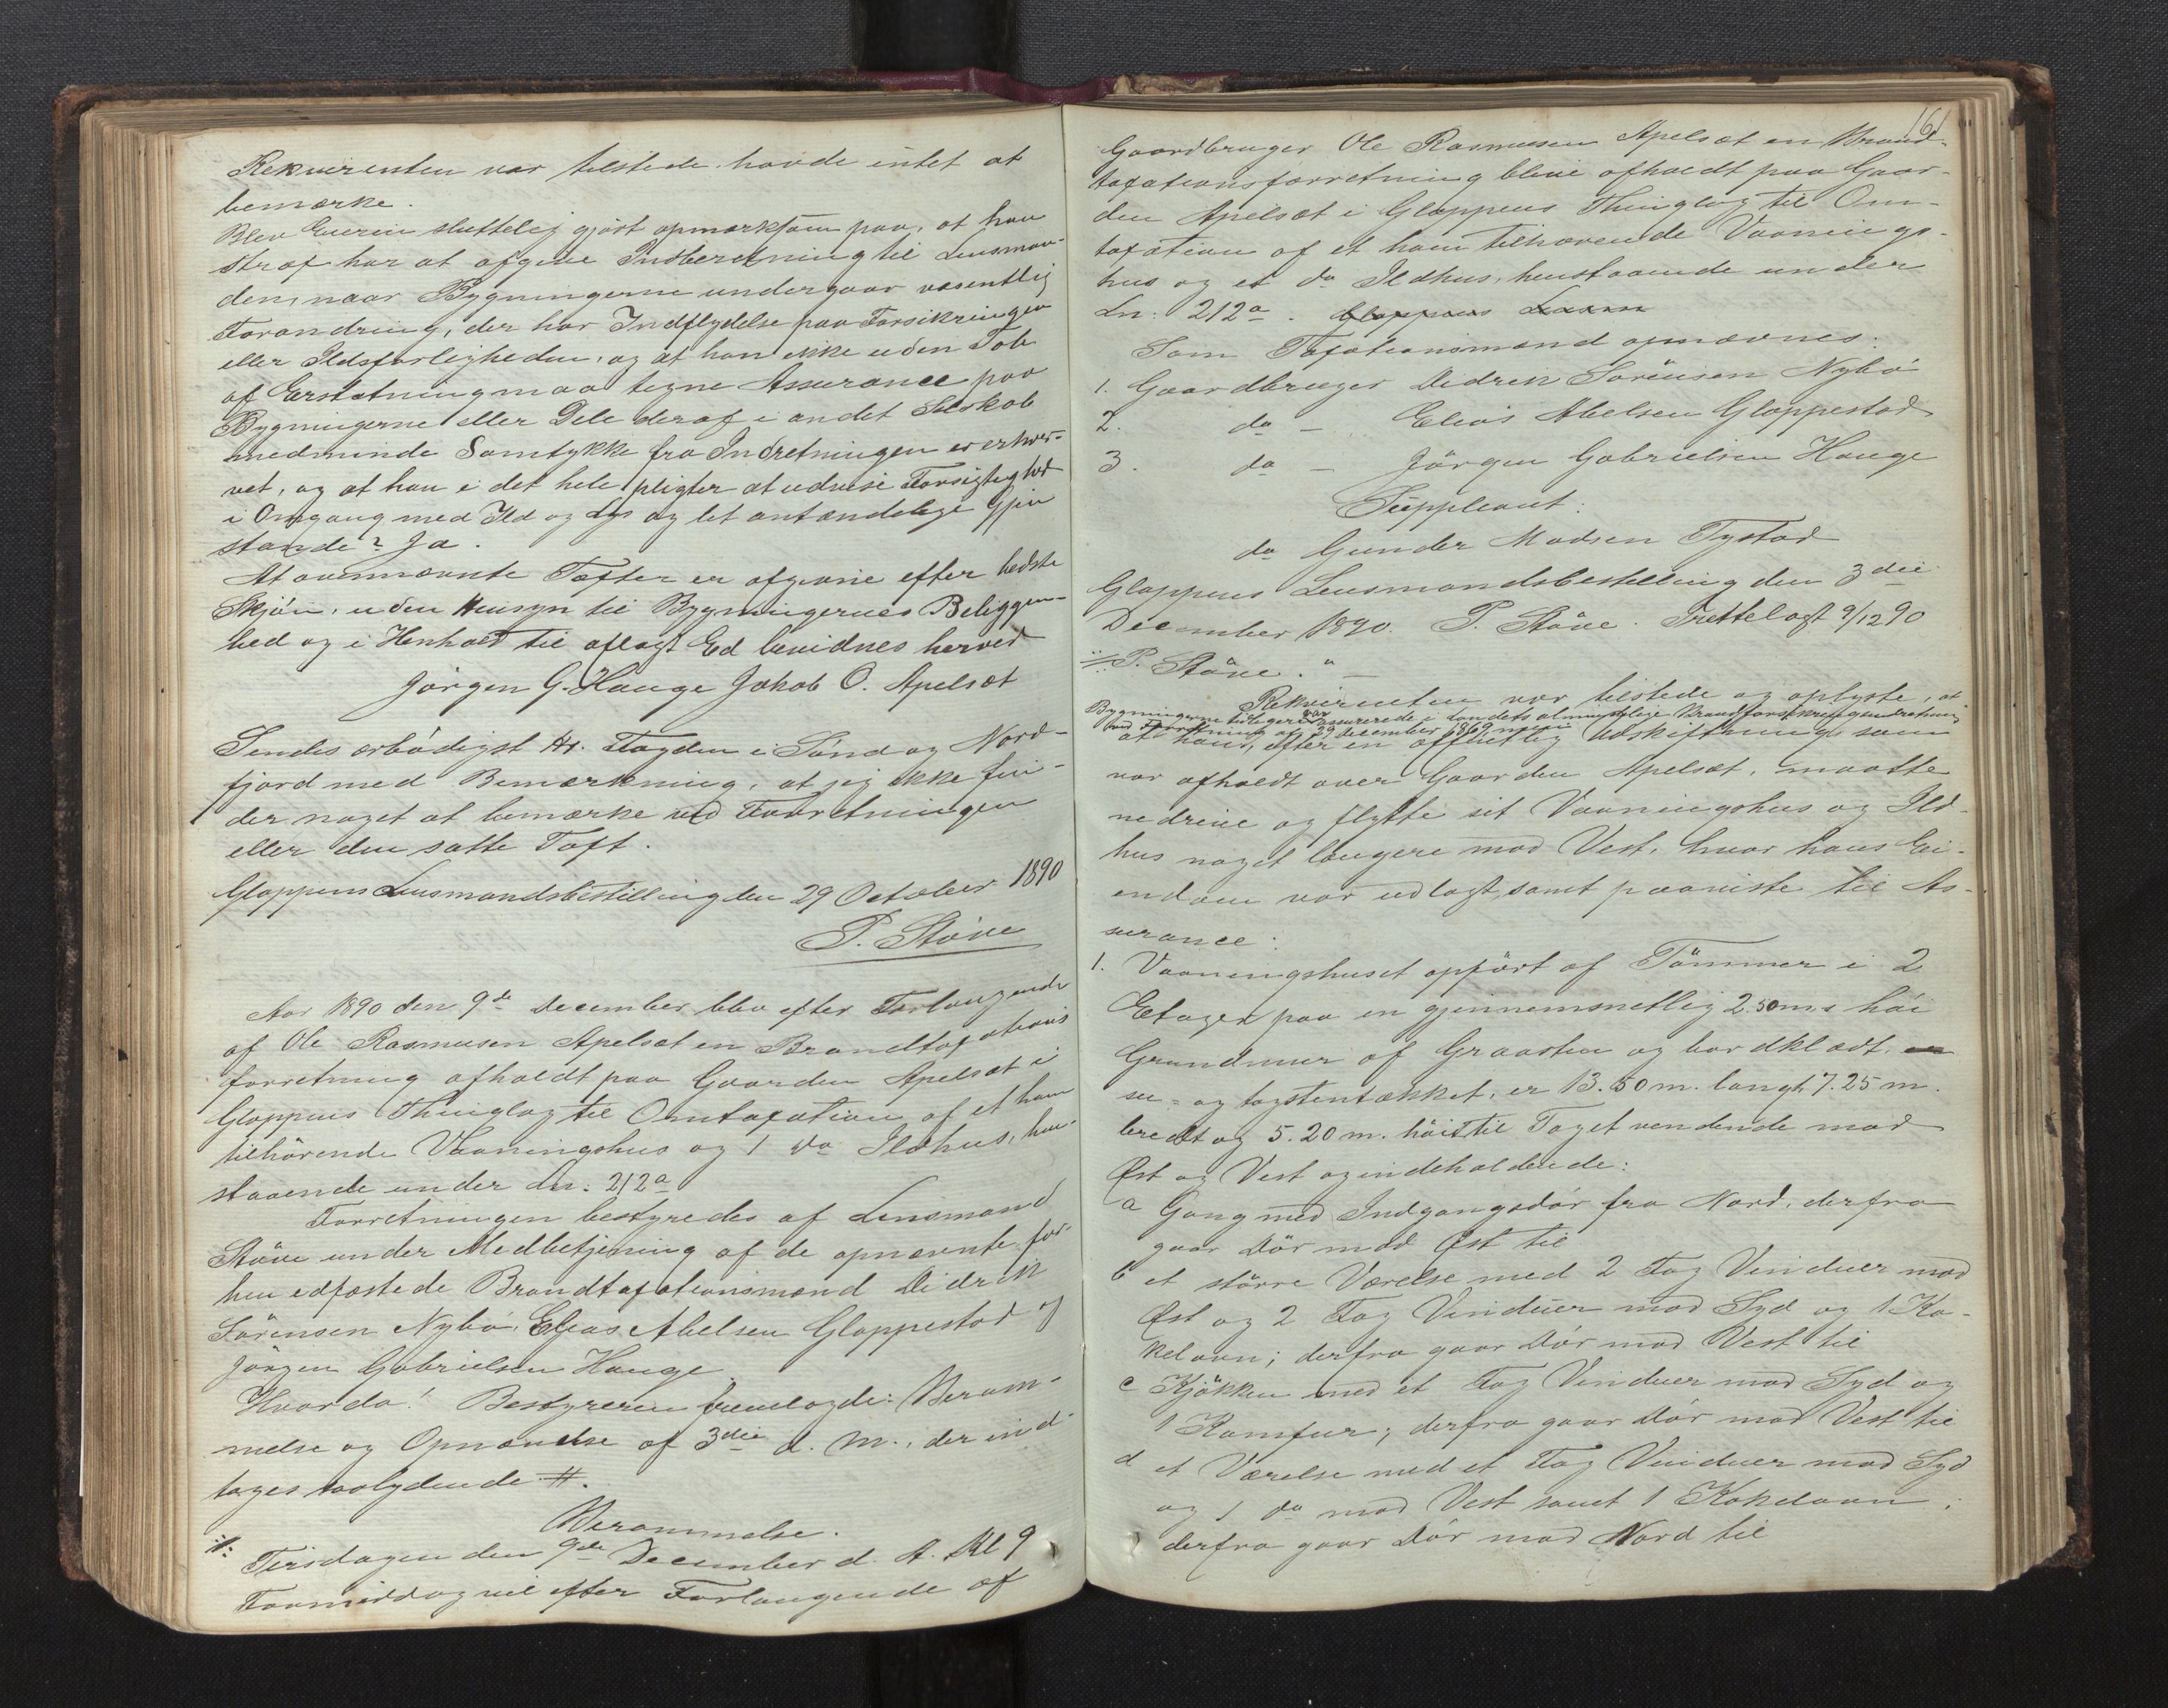 Rekvirenten var tilstede havde intet at
bemærke.
Blev Eieren sluttelig gjort opmærksom paa, at han
strax har at afgive Indberetning til Lensman-
den, naar Bygningerne undergaar væsentlig
Forandring, der har Indflydelse paa Forsikringen
eller Ildsfarligheden, og at han ikke uden Tab
af Erstatning maa tegne Assurance paa
Bygningerne eller Dele deraf i andet Selskab
medminde Samtykke fra Indretningen er erhver-
vet, og at han i det hele pligter at udvise Forsigtighed
i Omgang med Ild og Lys og let antændelige Gjen
stande? Ja.
At ovennævnte Taxter er afgivne efter bedste
Skjøn, uden Hensyn til Bygningernes Beliggen-
hed og i Henhold til aflagt Ed bevidnes herved
Jörgen G. Hauge Jakob O. Apelsæt
Sendes ærbödigst Hr. Fogden i Sönd og Nord-
fjord med Bemærkning, at jeg ikke fin-
der noget at bemærke ved Forretningen
eller den satte Taxt.
Gloppens Lensmandsbestilling den 29 October 1890
P. Støve
Aar 1890 den 9de December blev efter Forlangende
af Ole Rasmusen Apelsæt en Brandtaxations
forretning afholdt paa Gaarden Apelsæt i
Gloppens Thinglag til Omtaxation af et ham
tilhörende Vaaningshus og 1 do Ildhus, hen-
staaende under Ln: 212a
Forretningen bestyredes af Lensmand
Støve under Medbetjening af de opnævnte for-
hen edfæstede Brandtaxationsmænd Didrik
Sörensen Nybö, Elias Abelsen Gloppestad og
Jörgen Gabrielsen Hauge
Hvorda! Bestyreren fremlagde: Beram-
melse og Opnævnelse af 3die d. M., der ind-
tages saalydende #.
Berammelse.
Tirsdagen den 9de December d. A. Kl 9
Formiddag vil efter Forlangende af
161
Gaardbruger Ole Rasmusen Apelsæt en Brand-
taxationsforretning blive afholdt paa Gaar-
den Apelsæt i Gloppens Thinglag til Om-
taxation af et ham tilhørende Vaanings-
hus og et do Ildhus, henstaaende under
Ln: 212a. Gloppens
Som Taxationsmænd opnævnes:
1. Gaardbruger Didrik Sörensen Nybö
2. do – Elias Abelsen Gloppestad
3. do – Jörgen Gabrielsen Hauge
Suppleant:
do Gunder Madsen Tystad
Gloppens Lensmandsbestilling den 3die
December 1890. P. Støve. Rettelagt 9/12 90
P. Støve. "
Rekvirenten var tilstede og oplyste, at
Bygningerne tidligere var assurerede i Landets almindelige Brandforsikringsindretning
ved Forretning af 29 December 1869, men
at han, efter en offentlig Udskiftning som
var afholdt over Gaarden Apelsæt, maatte
nedrive og flytte sit Vaaningshus og Ild-
hus noget længere mod Vest, hvor hans Ei-
endom var udlagt, samt paaviste til As-
surance:
1. Vaaningshuset opfört af Tömmer i 2
Etager paa en gjennemsnetlig 2.50m.s höi
Grundmur af Graasten og bordklædt,
ne- og tagstentækket, er 13.50 m. langt, 7.25 m.
bredt og 5.20 m. höit til Taget vendende mod
Øst og Vest og indeholdende:
a Gang med Indgangsdör fra Nord, derfra
gaar Dör mod Øst til
b et större Værelse med 2 Fag Vinduer mod
Øst og 2 Fag Vinduer mod Syd og 1 Ka-
kelovn; derfra gaar Dör mod Vest til
c Kjökken med et Fag Vinduer mod Syd og
1 Komfur; derfra gaar Dör mod Vest til
d et Værelse med et Fag Vinduer mod Syd
og 1 do mod Vest samt 1 Kakelovn;
derfra gaar Dör mod Nord til